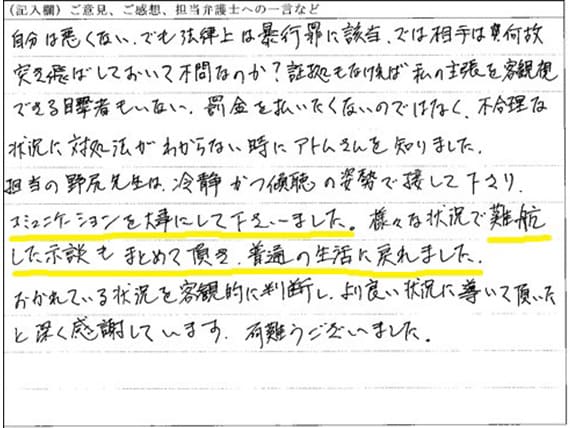 (記入欄)ご意見、ご感想、担当弁護士への一言など
自分は悪くない、でも法律上は暴行罪に該当、では相手は何故
突き飛ばしておいて不問なのか?証拠もなければ私の主張を客観視
できる目撃者もいない、罰金を払いたくないのではなく、不合理な
状況に対処法がわからない時にアトムさんを知りました。
担当の野尻先生は、冷静かつ傾聴の姿勢で接して下さり、
コミュニケーションを大事にして下さいました。様々な状況で難航
した示談もまとめて頂き、普通の生活に戻れました。
おかれている状況を客観的に判断し、より良い状況に導いて頂いた
と深く感謝しています。有難うございました。